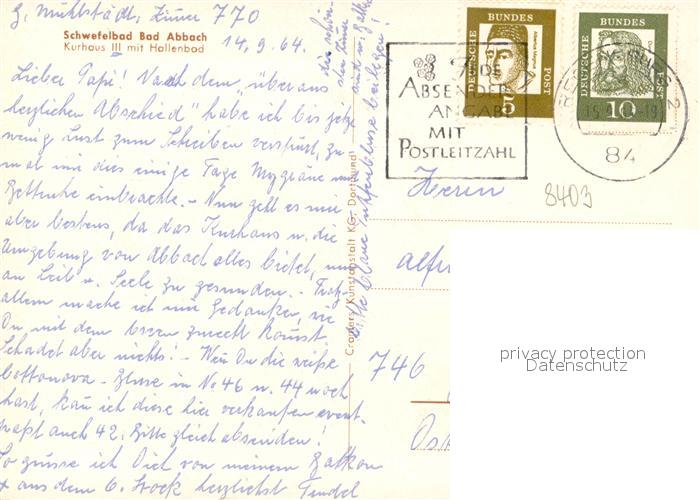 z. Mühlstädt, Zimmer 770
Schwefelbad Bad Abbach
Kurhaus III mit Hallenbad
14.9.64.
Lieber Papi! Nach dem „über aus
herzlichen Abschied" habe ich bis jetzt
wenig Lust zum Schreiben verspürt, zu-
mal mir dies einige Tage Migräne und
Bettruhe einbrachte. - Nun geht es mir
aber bestens, da das Kurhaus u. die
Umgebung von Abbach alles bietet, um
an Leib u. Seele zu gesunden. - Trotz-
allem mache ich mir Gedanken, wie
Du mit dem zurecht kommst.
Schadet aber nichts! - Wenn Du die weiße
Cottonova-Bluse in No 46 u. 44 noch
hast, kann ich diese hier verkaufen event.
paßt auch 42. Bitte gleich absenden!
So grüsse ich Dich von meinem Balkon
+ aus dem 6. Stock herzlichst
Bitte blaue beilegen!
Cramers Kunstanstalt KG. Dortmund
DEUTSCHE BUNDESPOST
5
DEUTSCHE BUNDESPOST
10
ABSENDER
ANGABE
MIT
POSTLEITZAHL
84
Herrn
8403
746
privacy protection
Datenschutz